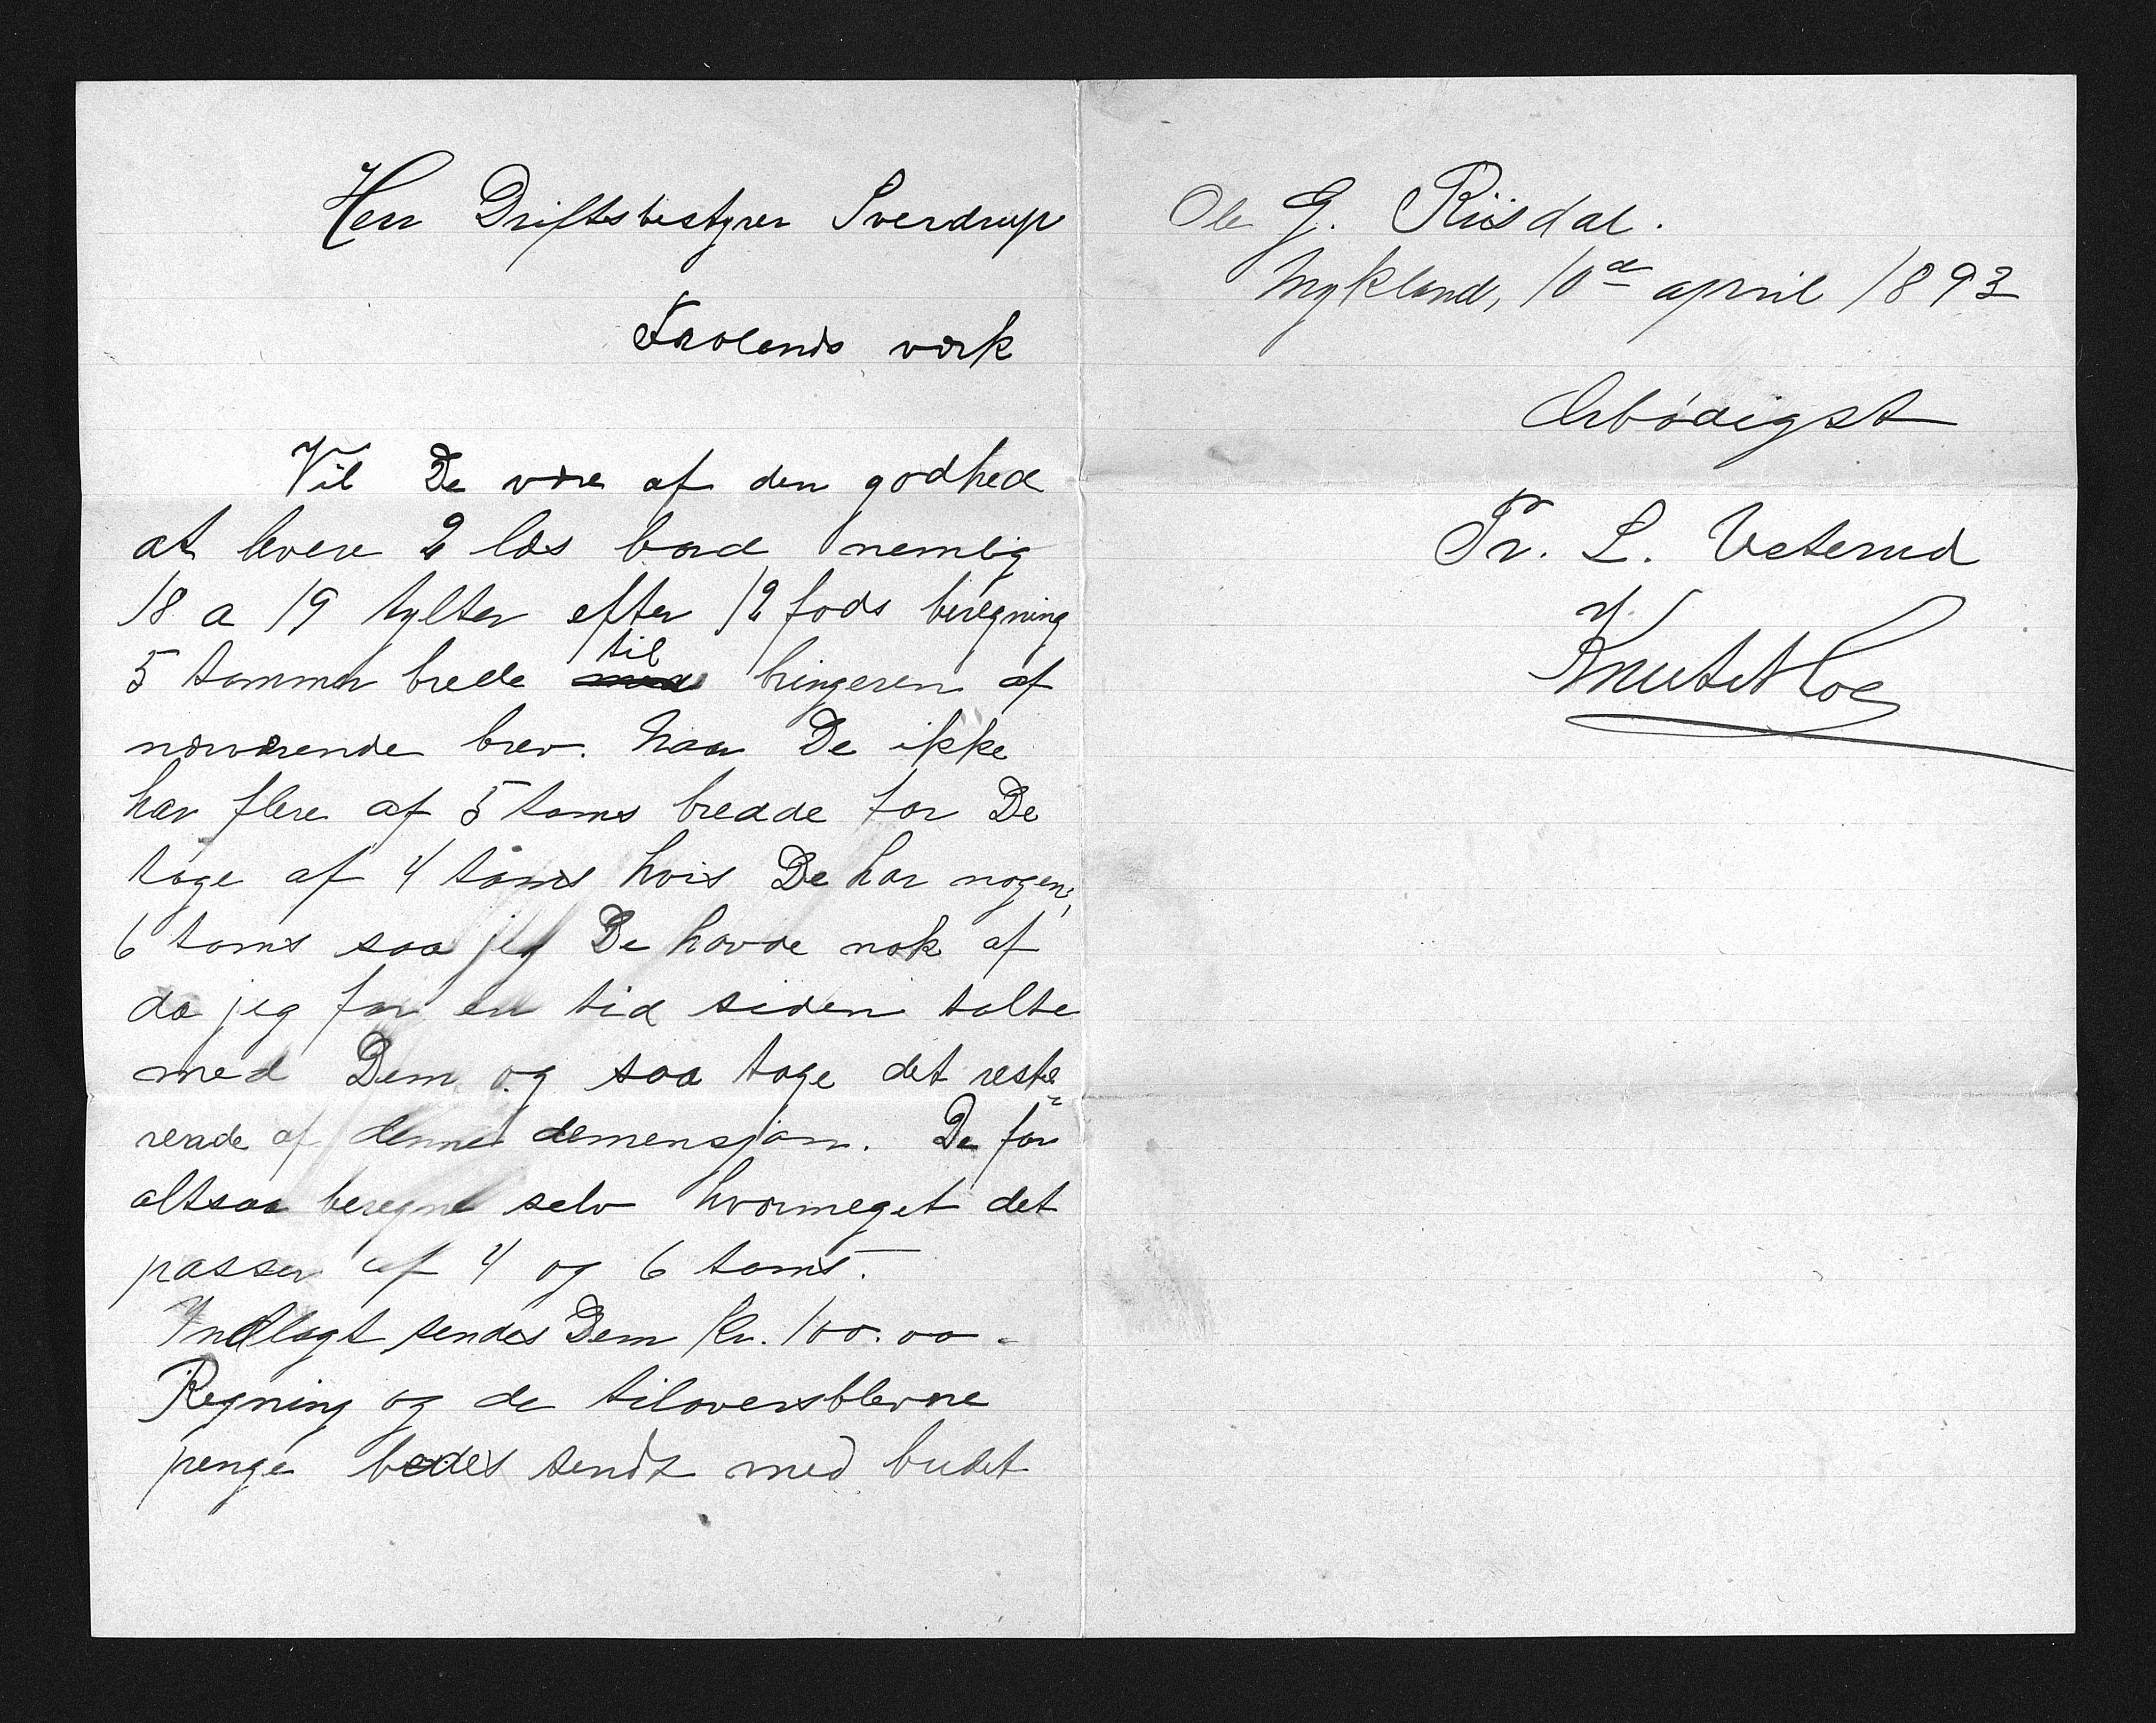 Herr Driftsbestyrer Sverdrup
Frolands værk
Vil De være af den godhed
at levere 2 læs bord nemlig
18 a 19 tylter efter 12 fods beregning
5 tommer brede til bringeren af
nærværende brev. Naar De ikke
har flere af 5 toms bredde får De
tage af 4 toms hvis De har nogen;
6 toms saa jeg De havde nok af
da jeg for en tid siden talte
med Dem og saa tage det reste=
rende af denne demensjon. De får
altsaa beregne selv hvormeget det
passer af 4 og 6 toms.
Indlagt sendes Dem Kr. 100.00 -
Regning og de tiloversblevne
penge bedes sendt med budet
Ole G. Riisdal.
Mykland, 10de april 1893
Ærbødigst
Tr. L. Veterud
v/
Knut